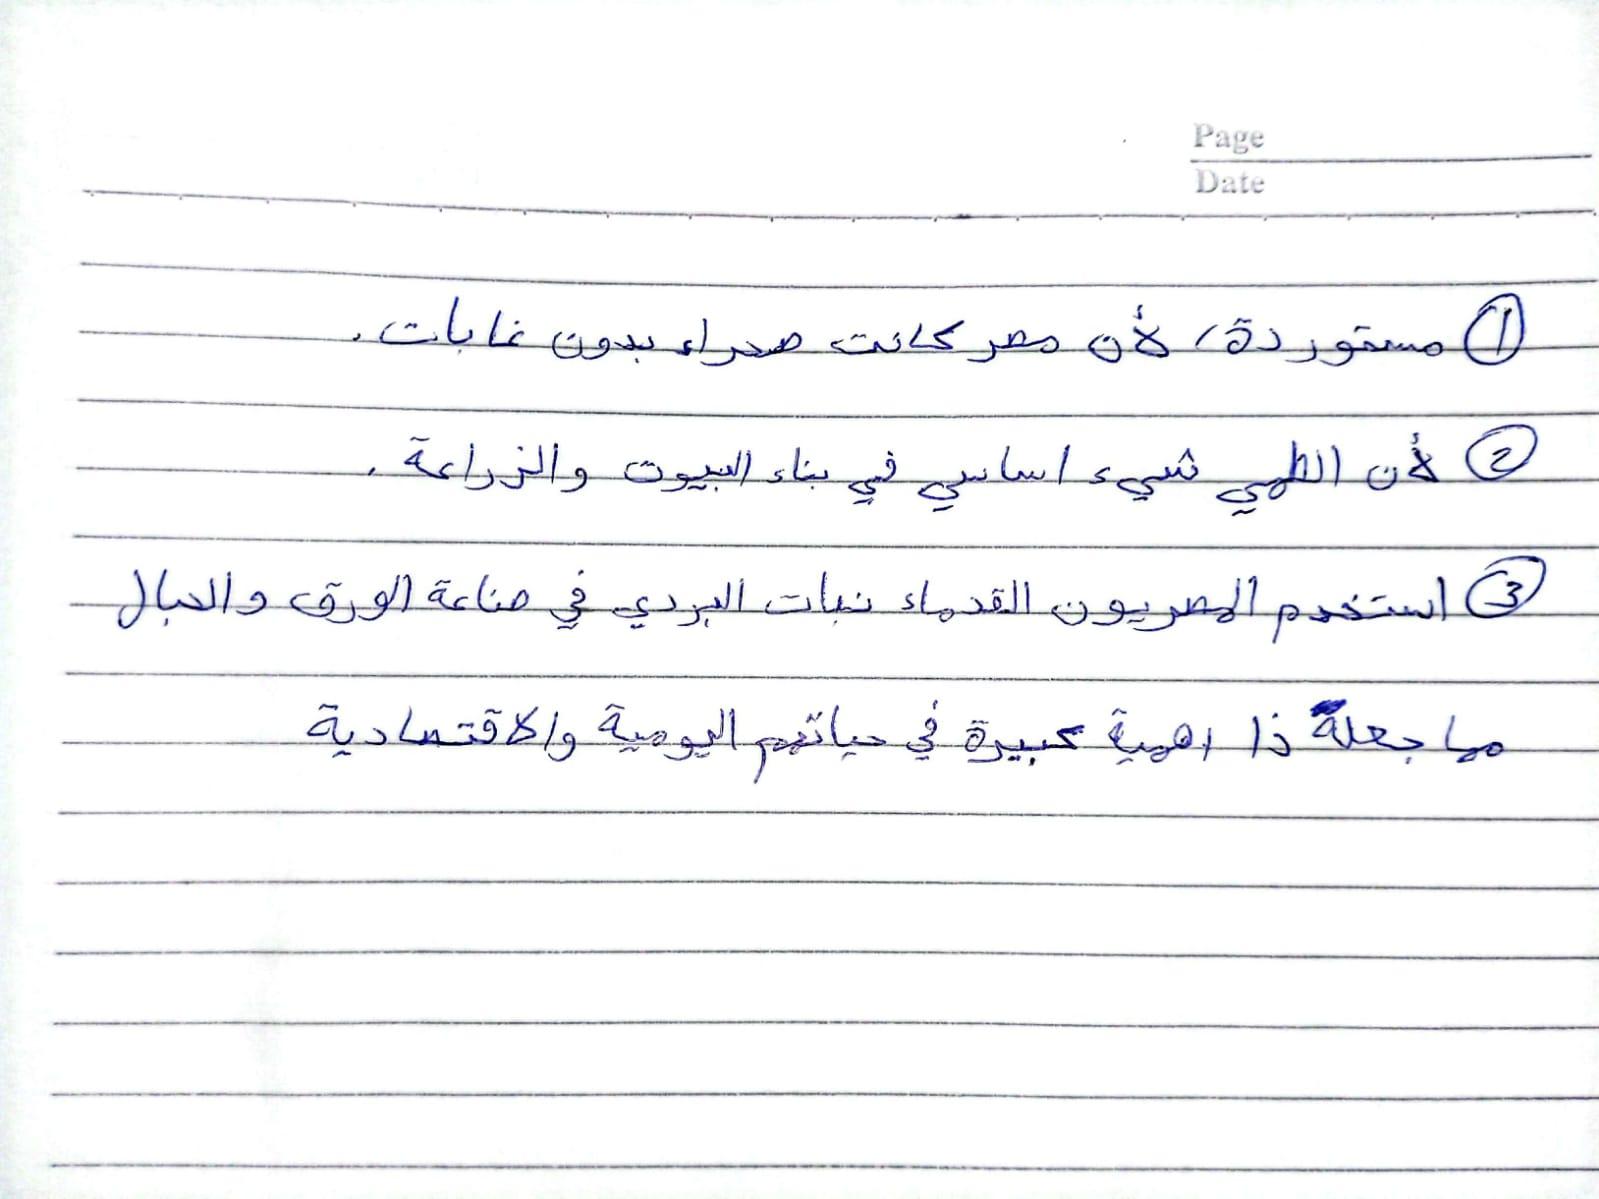 Page
Date
① مستوردة، لأن مصر كانت صحراء بدون غابات.
② لأن الطمي شيء اساسي في بناء البيوت والزراعة.
③ استخدم المصريون القدماء نبات البردي في صناعة الورق والحبال
مما جعلة ذا اهمية كبيرة في حياتهم اليومية والاقتصادية